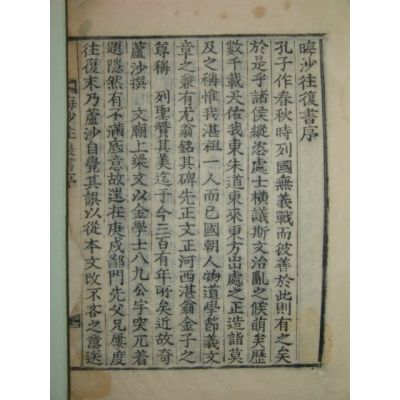 晦沙往復書序
孔子作春秋時列國無義戰而彼善於此則有之矣
於是乎諸侯縱恣處士橫議斯文治亂之候萌矣歷
數千載天佑我東朱道東來東方出處之正造詣莫
及之稱惟我湛祖一人而已國朝人物道學節義文
章之兼有尤翁銘其碑先正文正河西湛翁金子之
尊稱 列聖贊其美迄于今三百有年所矣近故奇
蘆沙撰 文廟上梁文以金學士八九公字突兀着
題隱然有不滿底意故適在庚戌鄙門先父兄屢度
往復末乃蘆沙自覺其誤以從本文改不吝之意送